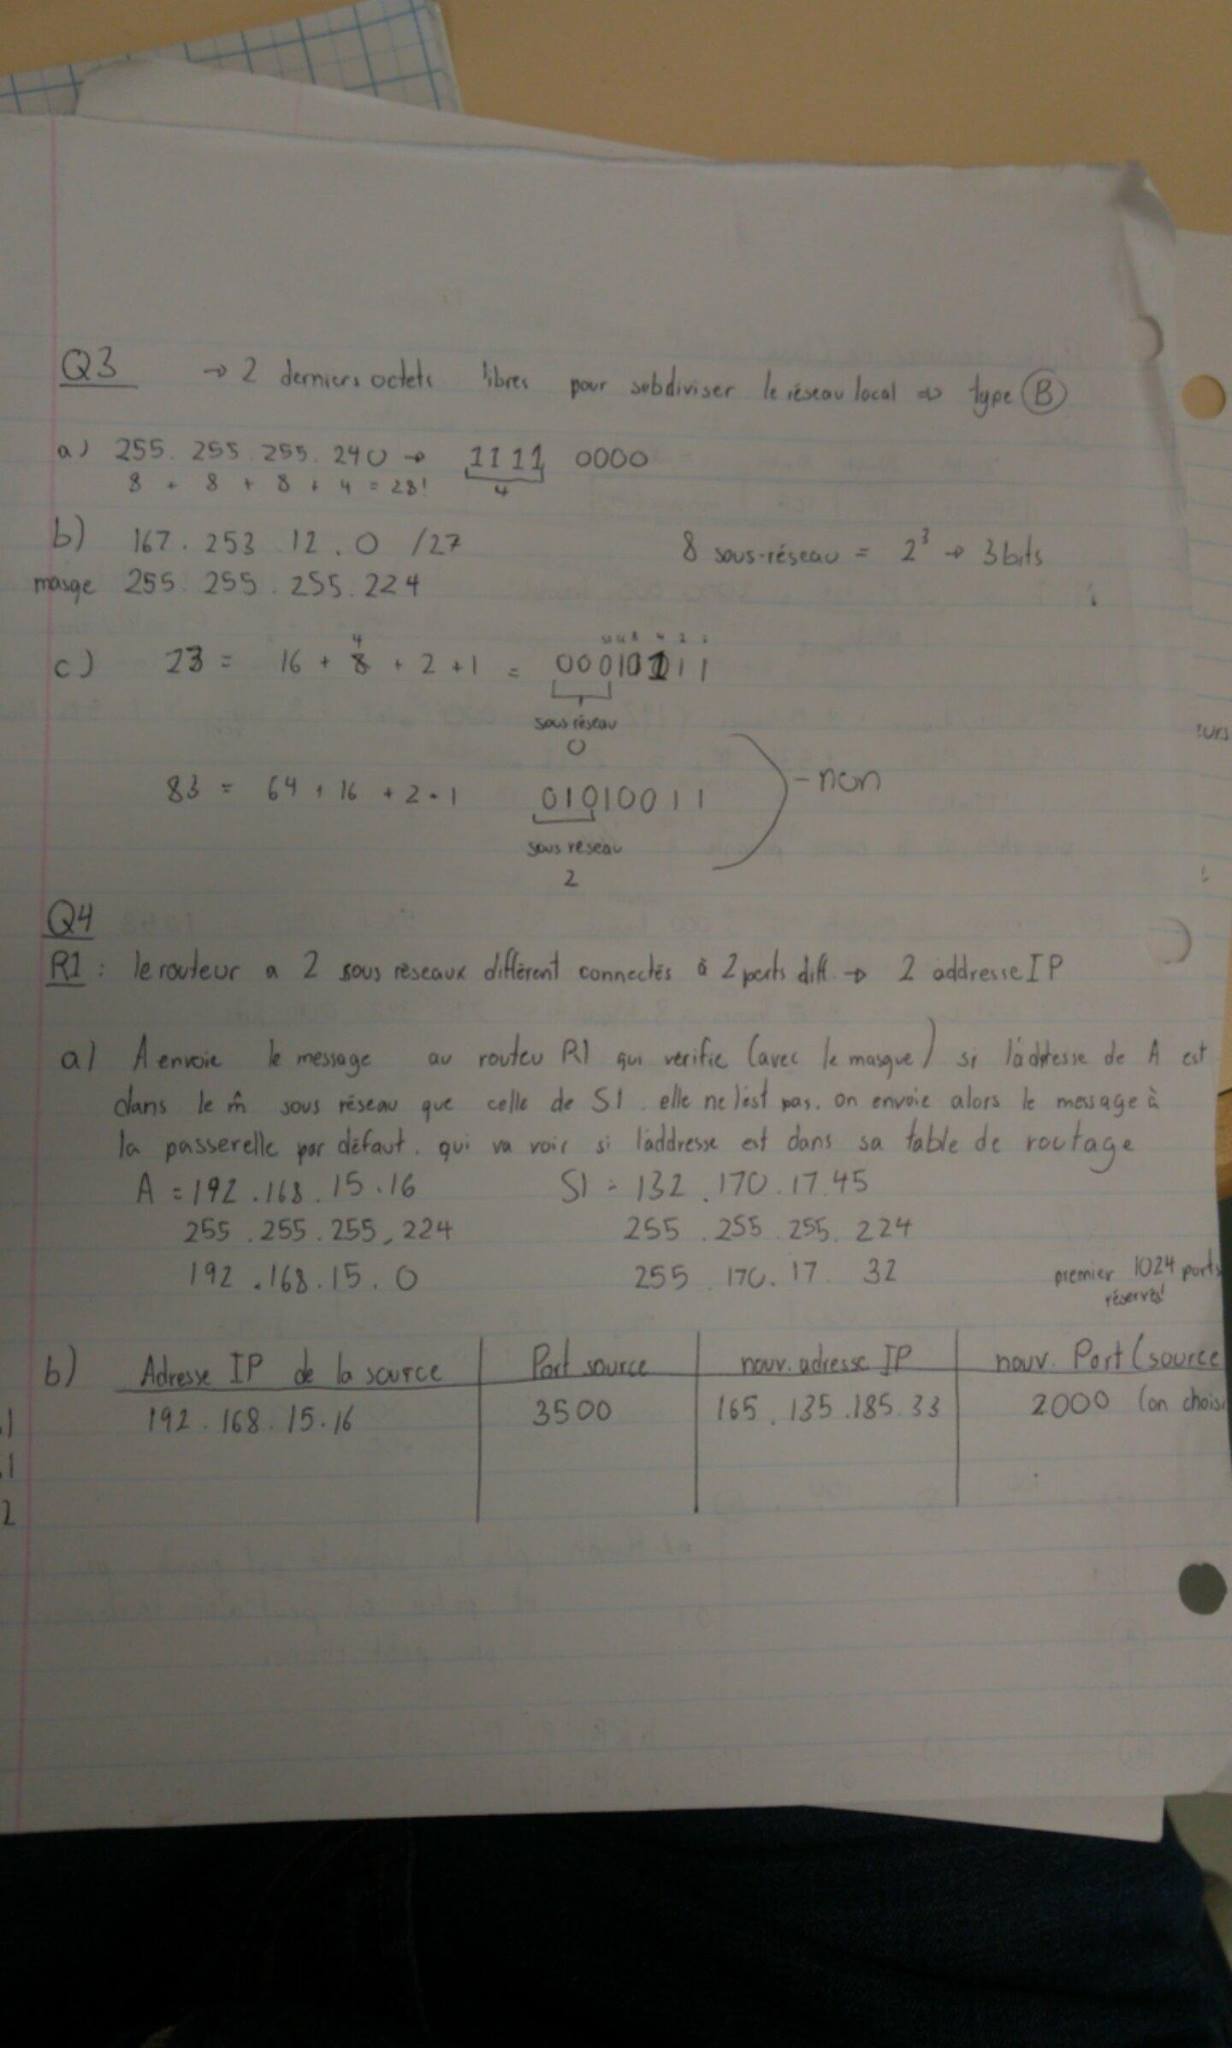 Q3 → 2 derniers octets libres pour subdiviser le réseau local => type B
a) 255. 255. 255. 240 → 1111 0000
8 + 8 + 8 + 4 = 28! 4
b) 167. 253 12. 0 /27 8 sous-réseau = 2³ → 3 bits
masqe 255. 255. 255. 224
4
c) 23 = 16 + 8 + 2 + 1 = 00010111
sous réseau
0
83 = 64 + 16 + 2 + 1 01010011 - non
sous réseau
2
Q4
R1: le routeur a 2 sous réseaux différent connectés à 2 ports diff. → 2 addresse IP
a) A envoie le message au routeu R1 qui vérifie (avec le masque) si l'addresse de A est
dans le m̂ sous réseau que celle de S1. elle ne l'est pas. on envoie alors le message à
la passerelle par défaut. qui va voir si l'addresse est dans sa table de routage
A = 192.168.15.16 S1 = 132.170.17.45
255.255.255.224 255.255.255.224
192.168.15.0 255 170.17. 32 premier 1024 ports
réservés!
b) Adresse IP de la source Port source nouv. adresse IP nouv. Port (source
192.168.15.16 3500 165.135.185.33 2000 (on chois